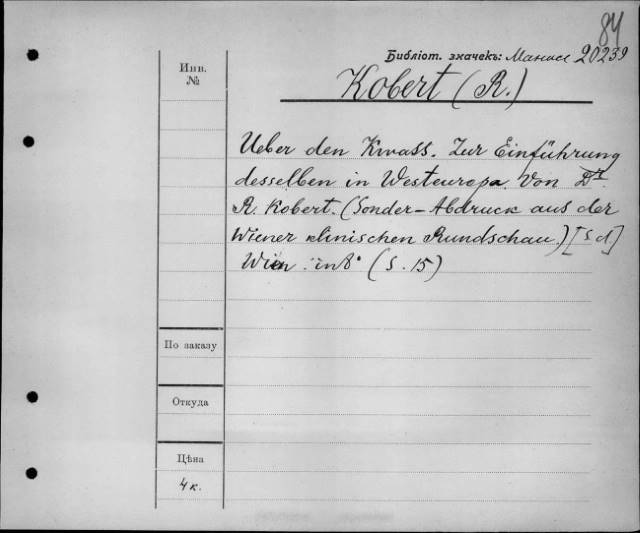 84
Библіот. значекъ: 20239
Инв.
№
Kobert (R.)
Ueber den Kwass. Zur Einführung
desselben in Westeuropa. Von Dr.
R. Kobert. (Sonder-Abdruck aus der
Wiener klinischen Rundschau.) [S d]
Wien in 8° (S. 15)
По заказу
Откуда
Цѣна
4 к.